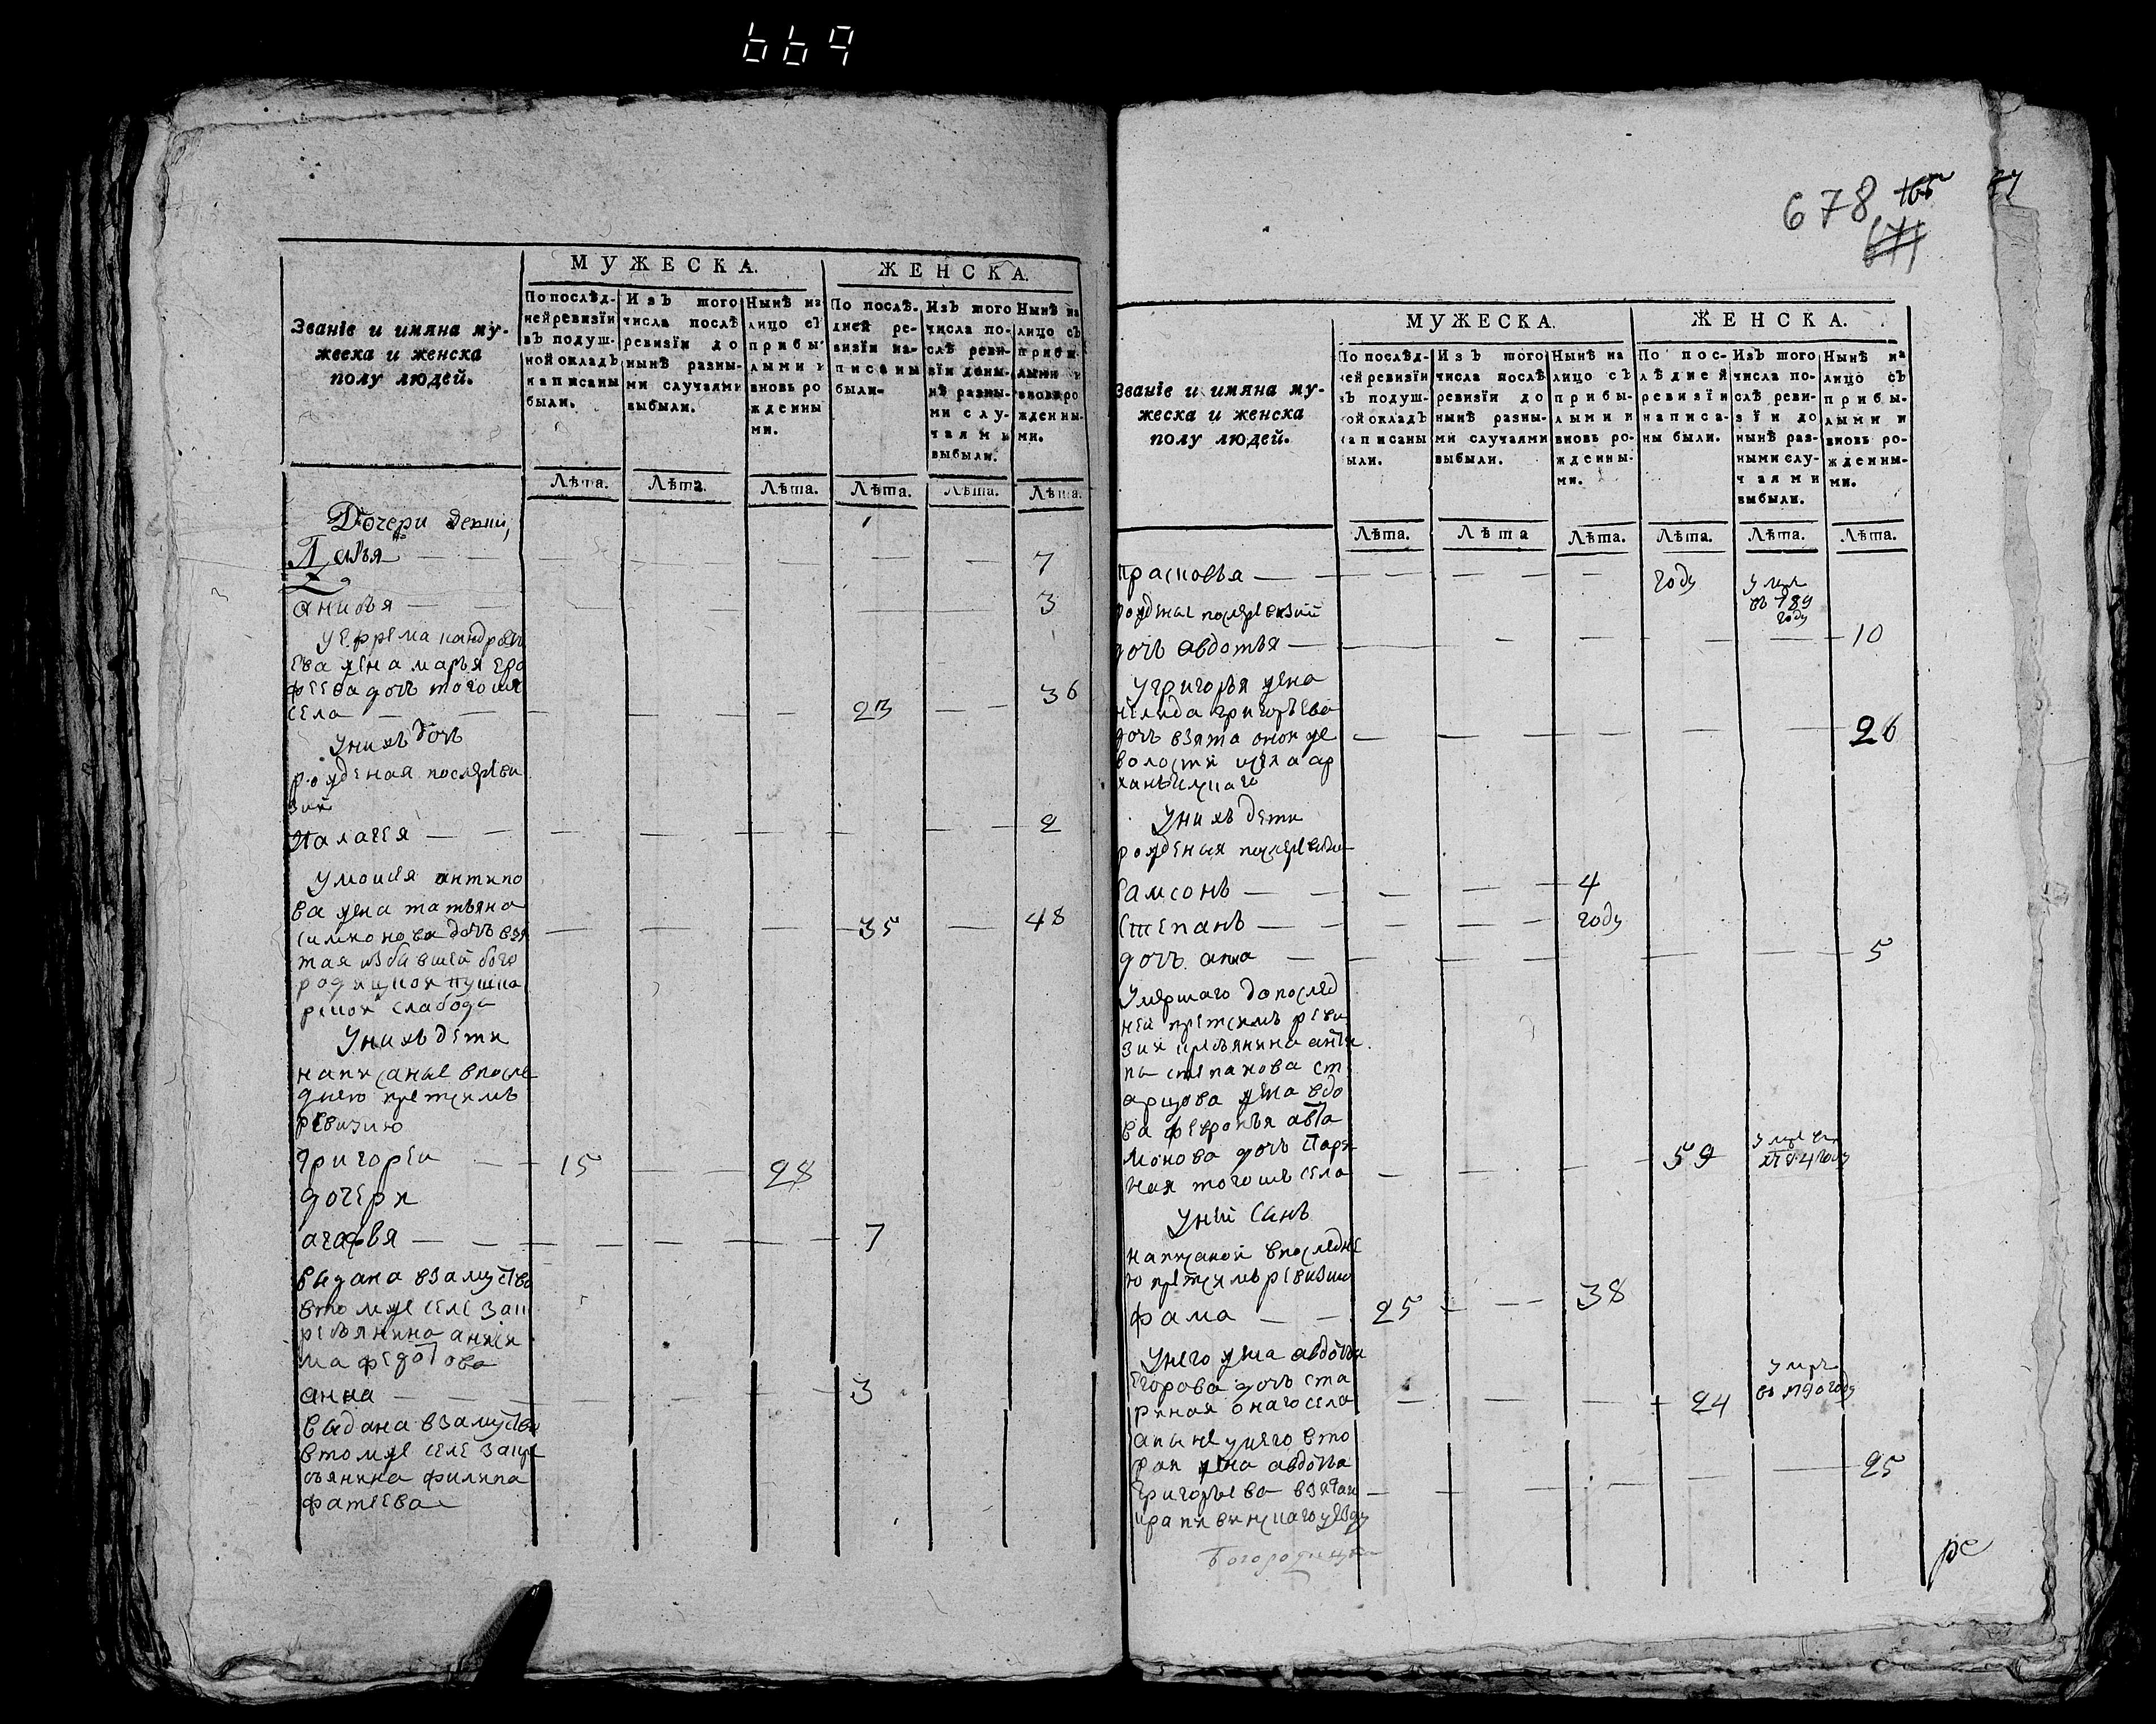 669
МУЖЕСКА.
ЖЕНСКА.
Званіе и имяна му-
жеска и женска
полу людей.
По послѣд-
ней ревизїи
въ подуш-
ной окладъ
написаны
были.
Изъ того
числа послѣ
ревизїи до
нынѣ разны-
ми случаями
выбыли.
Нынѣ на
лицо съ
прибы-
лыми и
вновь ро
жденны
ми.
По послѣ-
дней ре-
визїи на-
писаны
были.
Изъ того
числа по-
слѣ реви-
зїи доны-
нѣ разны-
ми слу-
чаями
выбыли.
Нынѣ на
лицо съ
прибы-
лыми и
вновь ро
жденны-
ми.
Лѣта. Лѣта. Лѣта. Лѣта. Лѣта. Лѣта.
Дочери
7
анисья 3
уефрема кандрать
ева жена марья еро
феева доч тогош 36
села 23
Унихъ дочь
рожденая послереви
зии
Палагея 2
Умосея антипо
ва жена татьяна
симионова дочь взя 35 48
тая избывшей бого
родицкой пушка
рской слабоды
Унихъ дети
написаные впосле
днею пред симъ
ревизию
Григореи 15 28
дочери
агафья 7
выдана взамуство
втомже селе за к
ресьянина аники
ма федотова
анна 3
выдана взамуство
втомже селе за кре
сьянина филипа
фатеева
678
671
МУЖЕСКА.
ЖЕНСКА.
Званіе и имяна му-
жеска и женска
полу людей.
По послѣд-
ней ревизїи
въ подуш-
ной окладъ
написаны
были.
Изъ того
числа послѣ
ревизїи до
нынѣ разны-
ми случаями
выбыли.
Нынѣ на
лицо съ
прибы-
лыми и
вновь ро-
жденны-
ми.
По пос-
лѣдней
ревизїи
написа-
ны были.
Изъ того
числа по-
слѣ реви-
зїи до
нынѣ раз-
ными слу-
чаями
выбыли.
Нынѣ на
лицо съ
прибы-
лыми и
вновь ро-
жденны-
ми.
Лѣта. Лѣта Лѣта. Лѣта. Лѣта. Лѣта.
прасковья году умр
въ 789
году
рожденые послеревизии
дочь авдотья 10
Угригорья жена
григорьева
дочь взята оной же 26
волости села ар
ханьгилскаго
Унихъ дети
рожденыя послеревизи
Самсонъ 4
Степанъ году
дочь анна 5
Умершаго допослед
ней пред симъ реви
зии кресьянина анти
пы степанова ст
арцова жена вдо
ва февронья авта
монова дочь стари 59 умре въ
ная тогошъ села 794 году
Уней сынъ
написаной впоследне
ю пред симъ ревизию
фама 25 38
Унего жена авдотья
Егорова дочь ста умре
риная онаго села 24 въ 1790 году
аныне унего вто
рая жена авдотья 25
Григорьева взятая
крапивинскаго уезду
Богородицка
ре